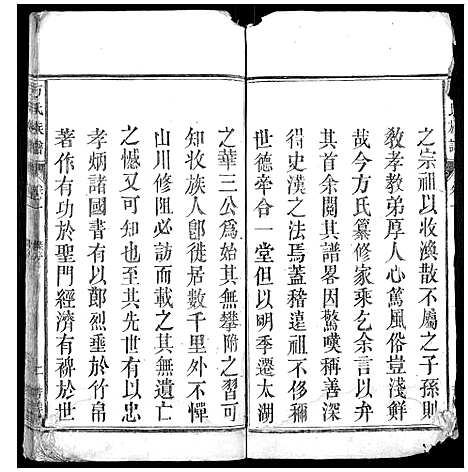 之宗祖以收渙散不屬之子孫則
敎孝教弟厚人心篤風俗豈淺鮮
哉今方氏纂修家乘乞余言以弁
其首余閱其譜畧因驚嘆稱善深
得史漢之法焉蓋稽遠祖不傳偶
世德牽合一堂但以明季遷太湖
之華三公爲始其無攀附之習可
知收族人卽徙居數千里外不憚
山川修阻必訪而載之其無遺亡
之憾又可知也至其先世有以忠
孝炳諸國書有以郎烈垂於竹帛
著作有功於聖門經濟有裨於世
方氏族譜